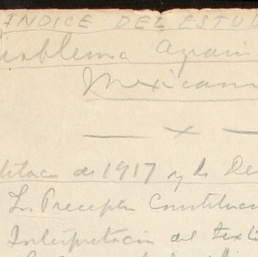 INDICE DEL ESTU
roblema Agrari
Mexican
titución de 1917 y la De
Los Preceptos Constitucio
Interpretación del text